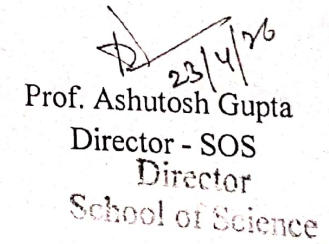 23/4/26
Prof. Ashutosh Gupta
Director - SOS
Director
School of Science